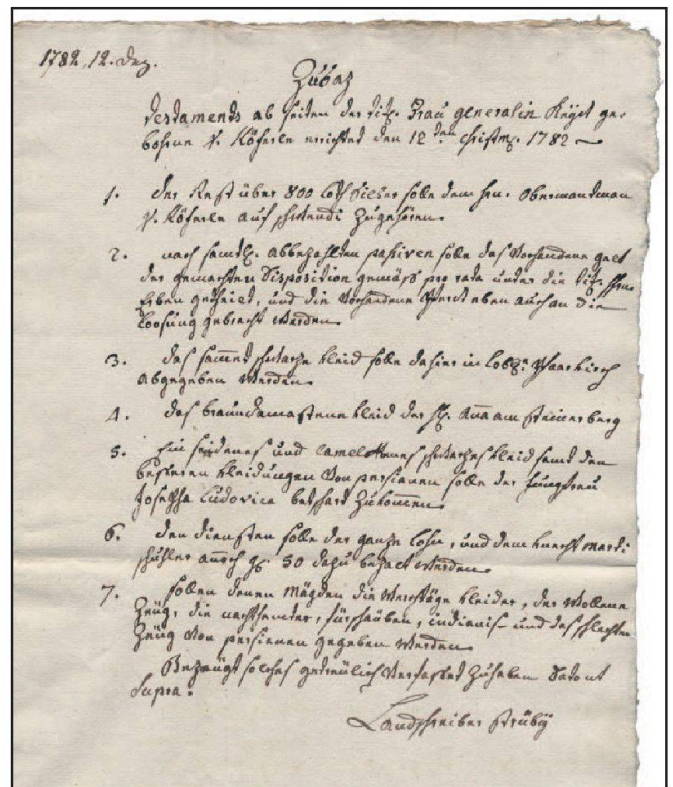 1782, 12. Dez.
Zusaz
Testaments ab seiten der tit. Frau generalin Reyst ge-
bohrne v. Köferle errichtet den 12ten Christm. 1782
1. der Rest über 800 Loth Silber solle dem hrn. Obermandman
v. Köferle auf zugehören.
2. nach samtl. abbezahlten passiven solle das Vorhandene gelt
der gemachten Disposition gemäss pro rata unter die tit.
Erben getheilt, und die Vorhandene Pferdt eben auch an die
Loosung gebracht werden.
3. das samet schwarze kleid solle dahier in lobl. Pfaarkirch
abgegeben werden.
4. das braundamastene kleid der hl. Anna am steinerberg
5. Ein seidenes und camelottenes schwarzes kleid samt den
besseren kleidungen von persianen solle der Jungfrau
Josepha Ludovica betschart zukommen.
6. den diensten solle der ganze lohn, und dem knecht marti
schuhler annoch gl. 50 dazu bezalt werden.
7. sollen denen Mägden die werchtäge kleider, der wollene
Zeüg, die nachthemter, fürschäuben, indianis- und das schlechten
Zeüg von persianen gegeben werden.
Bezeügt solches getreülich Verfasset zuhaben dato ut
supra.
Landschreiber strübÿ